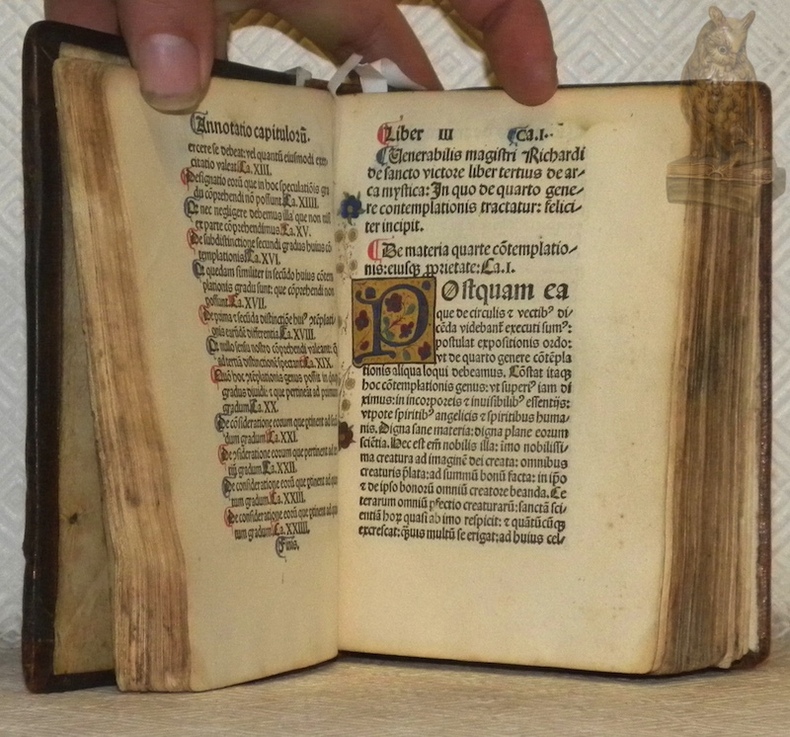 Annotatio capitulorū.
ercere se debeat: vel quantū eiusmodi exer
citatio valeat. Ca. XIII.
Designatio eorū que in hoc speculatiōis gra
du cōprehendi nō possunt. Ca. XIIII.
Qr nec negligere debemus illa que non nisi
ex parte cōprehendimus. Ca. XV.
De subdistinctione secundi gradus huius cō
templationis. Ca. XVI.
Qr quedam similiter in secūdo huius cōtem
plationis gradu sunt: que cōprehendi non
possunt. Ca. XVII.
De prima et secūda distinctiōe huiꝰ ꝯtēplati
onis earūdē differentia. Ca. XVIII.
Qr nullo sensu nostro cōprehendi valeant: q̄
ad tertiā distinctionē spectant. Ca. XIX.
Quō hoc ꝯtēplationis genus possit in duos
gradus diuidi: et que pertineāt ad primum
gradum. Ca. XX.
De cōsideratione eorum que ꝑtinent ad secū
dum gradum. Ca. XXI.
De ꝯsideratione eorum que pertinent ad ter
tiū gradum. Ca. XXII.
De consideratione eorū que ꝑtinent ad quar
tum gradum. Ca. XXIII.
De consideratione eorū que ꝑtinent ad quin
tum gradum. Ca. XXIIII.
Finis.
Liber III Ca. I.
Venerabilis magistri Richardi
de sancto victore liber tertius de ar-
ca mystica: In quo de quarto gene-
re contemplationis tractatur: felici-
ter incipit.
De materia quarte cōtemplatio-
nis: eiusq; ꝓprietate: Ca. I.
POstquam ea
que de circulis et vectibꝰ di-
cēda videbant᷑ executi sumꝰ:
postulat expositionis ordo:
vt de quarto genere cōtēpla
tionis aliqua loqui debeamus. Cōstat itaq;
hoc cōtemplationis genus: vt superiꝰ iam di
ximus: in incorporeis et inuisibilibꝰ essentijs:
vtpote spiritibꝰ angelicis et spiritibus huma-
nis. Digna sane materia: digna plane eorum
sciētia. Hec est em̄ nobilis illa: imo nobilissi-
ma creatura ad imaginē dei creata: omnibus
creaturis p̄lata: ad summū bonū facta: in ip̄o
et de ipso bonorū omniū creatore beanda. Ce
terarum omniū ꝑfectio creaturarū: sanctā sci-
entiā hoꝝ quasi ab imo respicit: et quātūcūq;
excrescat: q̄uis multū se erigat: ad huius cel-